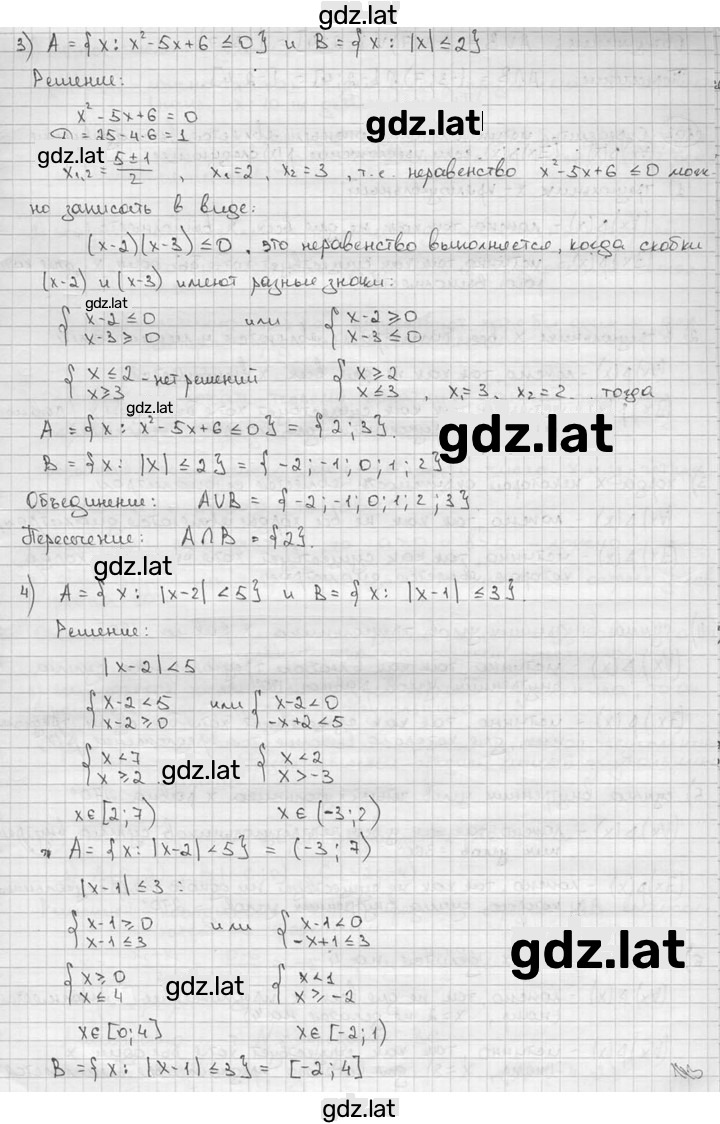 gdz.lat
3) A = { x : x² - 5x + 6 ≤ 0 } и B = { x : |x| ≤ 2 }
Решение:
x² - 5x + 6 = 0
D = 25 - 4·6 = 1
gdz.lat
gdz.lat
x₁,₂ = (5 ± 1)/2 , x₁ = 2 , x₂ = 3 , т.е. неравенство x² - 5x + 6 ≤ 0 мож-
но записать в виде:
(x-2)(x-3) ≤ 0 , это неравенство выполняется, когда скобки
(x-2) и (x-3) имеют разные знаки:
gdz.lat
{ x-2 ≤ 0 или { x-2 ≥ 0
x-3 ≥ 0 x-3 ≤ 0
{ x ≤ 2 - нет решений { x ≥ 2
x ≥ 3 x ≤ 3 , x₁ = 3, x₂ = 2. тогда
gdz.lat
A = { x : x² - 5x + 6 ≤ 0 } = { 2 ; 3 }.
gdz.lat
B = { x : |x| ≤ 2 } = { -2 ; -1 ; 0 ; 1 ; 2 }
Объединение: A∪B = { -2 ; -1 ; 0 ; 1 ; 2 ; 3 }
Пересечение: A∩B = { 2 }.
gdz.lat
4) A = { x : |x-2| < 5 } и B = { x : |x-1| ≤ 3 }.
Решение:
|x-2| < 5
{ x-2 < 5 или { x-2 < 0
x-2 ≥ 0 -x+2 < 5
{ x < 7 { x < 2
x ≥ 2 x > -3
gdz.lat
x ∈ [2 ; 7) x ∈ (-3 ; 2)
A = { x : |x-2| < 5 } = (-3 ; 7)
|x-1| ≤ 3 :
{ x-1 ≥ 0 или { x-1 < 0
x-1 ≤ 3 -x+1 ≤ 3
gdz.lat
{ x ≥ 0 { x < 1
x ≤ 4 x ≥ -2
gdz.lat
x ∈ [0 ; 4] x ∈ [-2 ; 1)
B = { x : |x-1| ≤ 3 } = [-2 ; 4]
gdz.lat